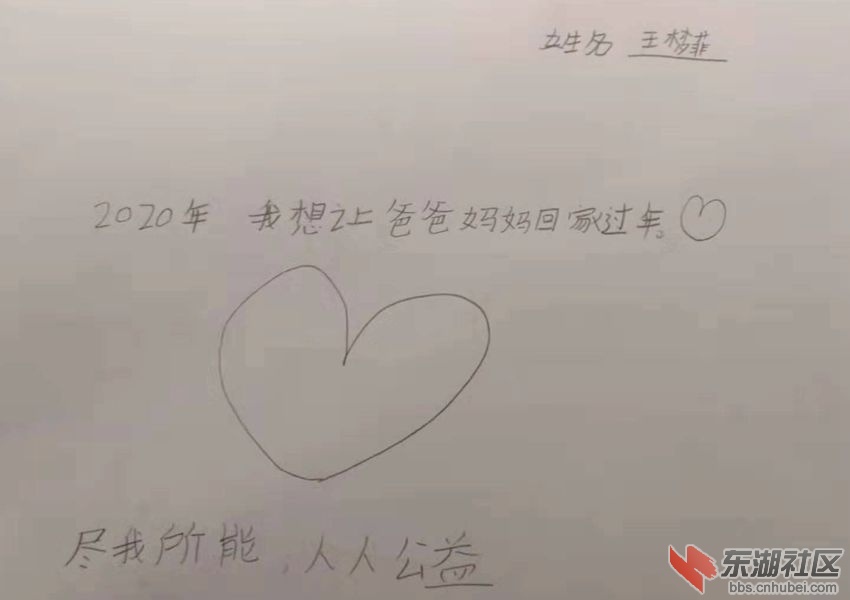 姓名 王梦菲
2020年 我想让爸爸妈妈回家过年。
尽我所能,人人公益
东湖社区
bbs.cnhubei.com